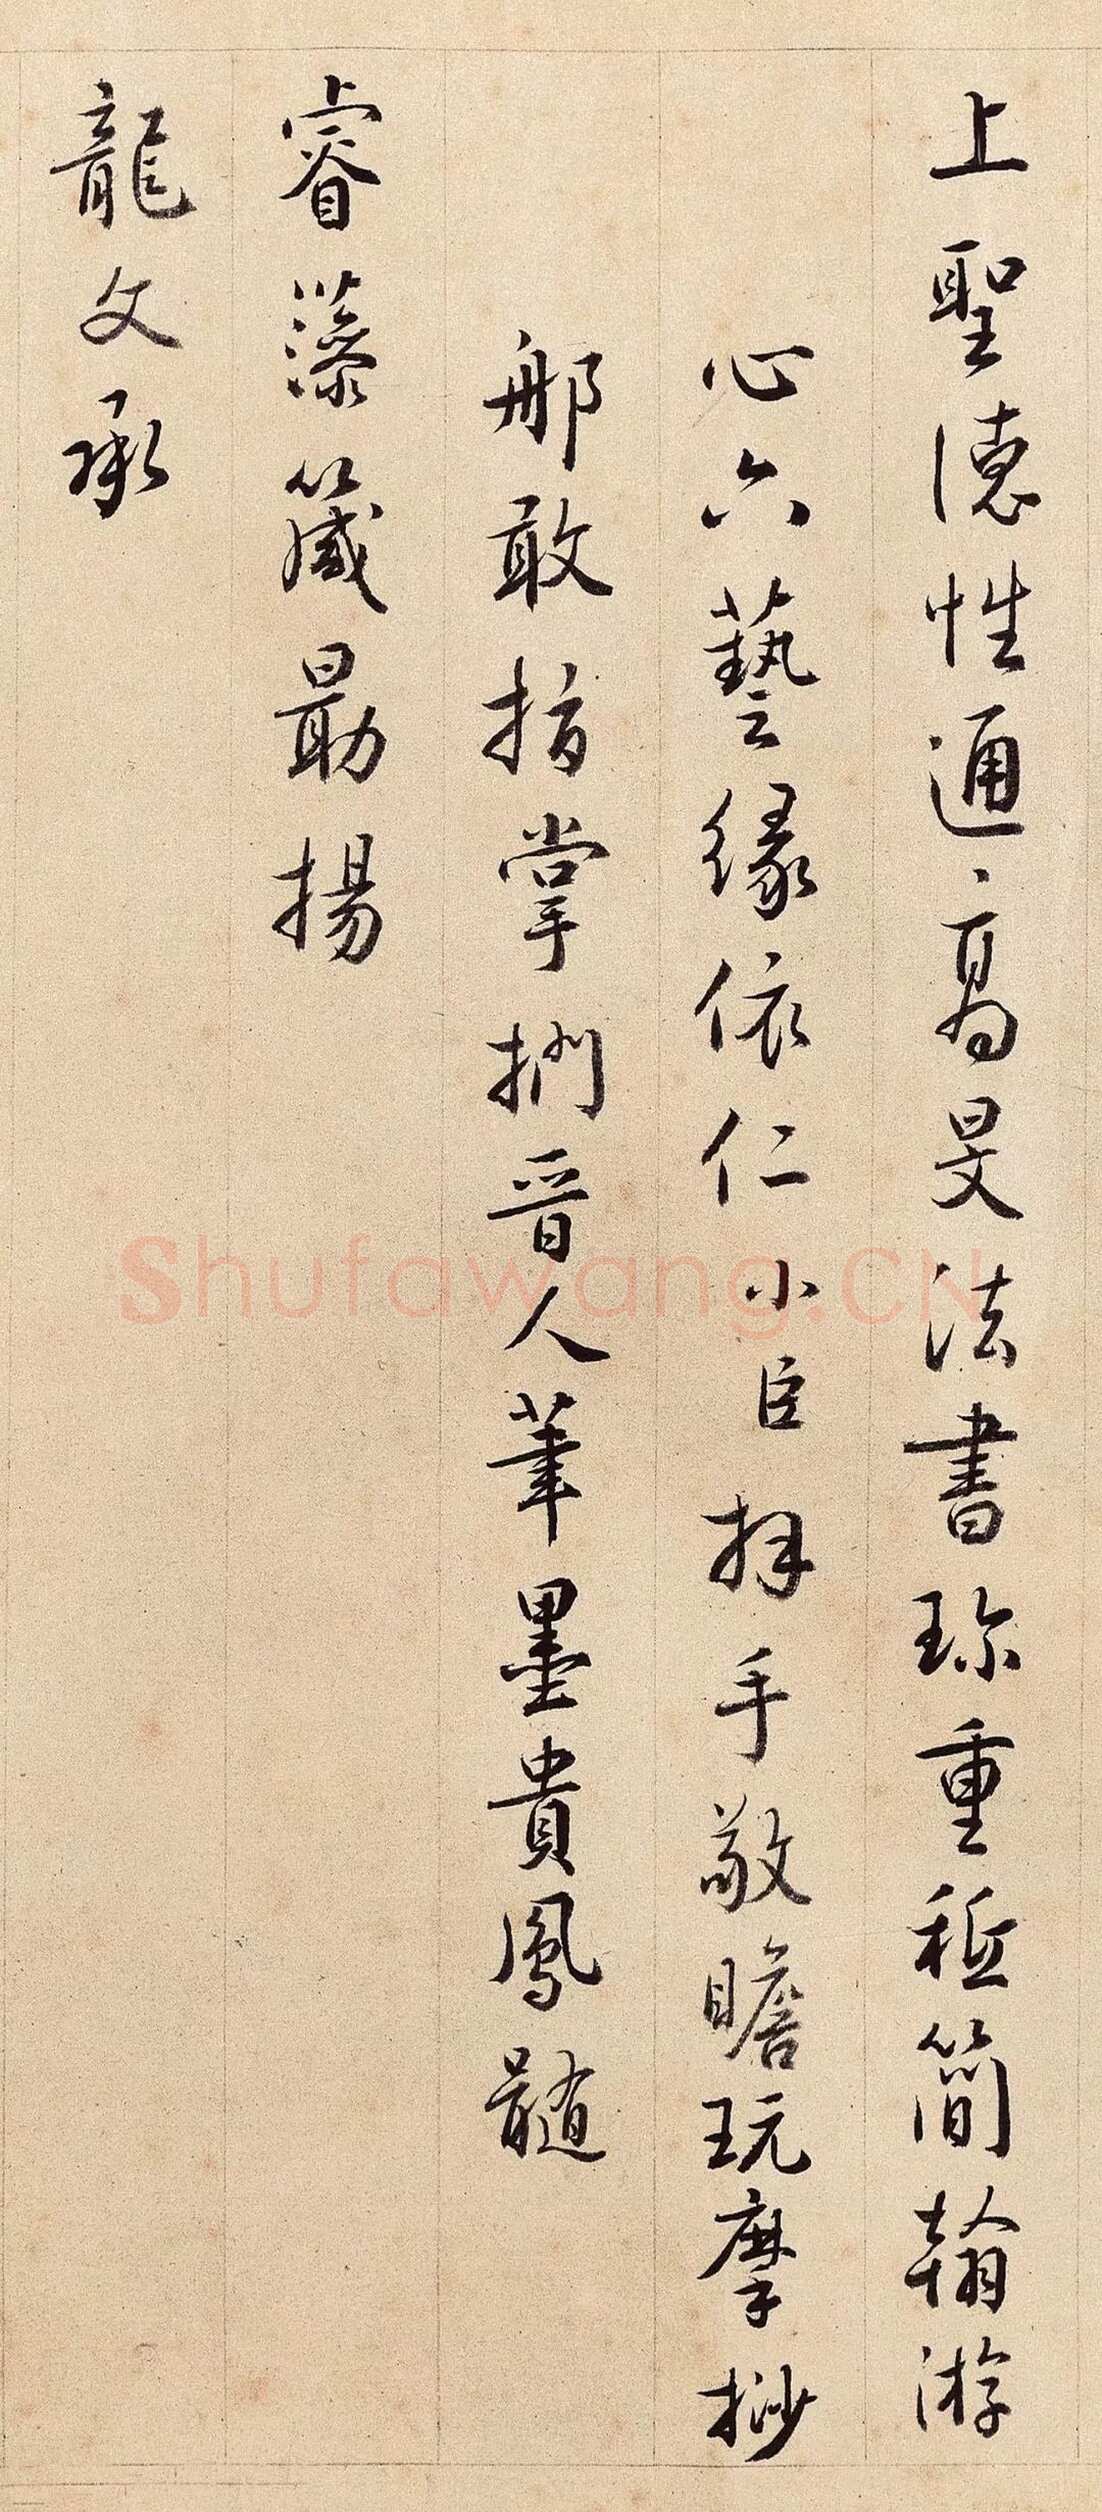 上聖德性通高旻法書珎重秪簡翰游
心六藝緣依仁小臣拜手敬瞻玩摩挱
那敢指掌捫晉人筆墨貴鳳髓
睿藻箴勗揚
龍文承
Shufawang.CN